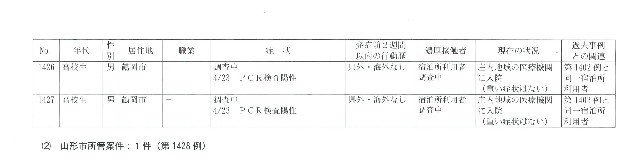 No 年代 性別 居住地 職業 症 状 発症前2週間以内の行動歴 濃厚接触者 現在の状況 過去事例との関連
1426 高校生 男 鶴岡市 － 調査中 4/23 PCR検査陽性 県外・海外なし 宿泊所利用者調査中 庄内地域の医療機関に入院（重い症状はない） 第1402例と同一宿泊所利用者
1427 高校生 男 鶴岡市 － 調査中 4/23 PCR検査陽性 県外・海外なし 宿泊所利用者調査中 庄内地域の医療機関に入院（重い症状はない） 第1402例と同一宿泊所利用者
(2) 山形市所管案件：1件（第1428例）